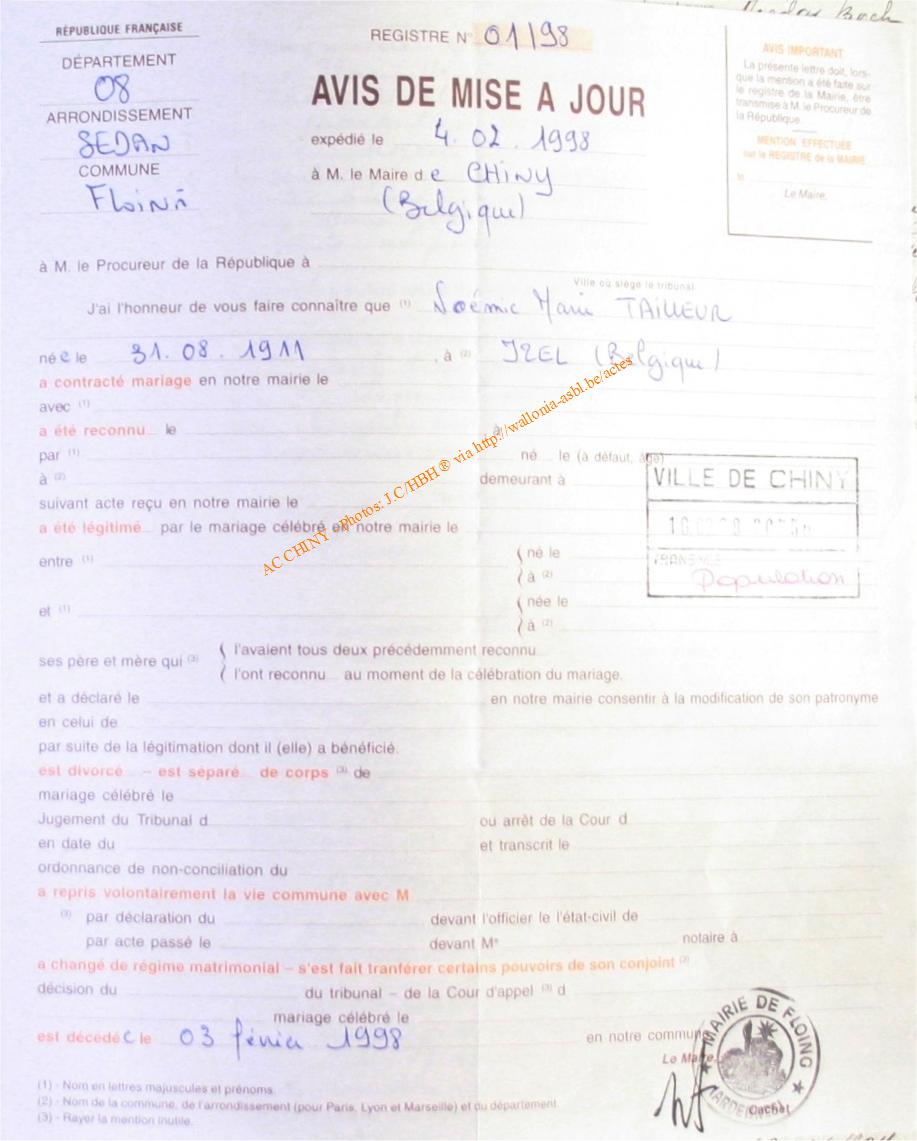 RÉPUBLIQUE FRANÇAISE
DÉPARTEMENT
08
ARRONDISSEMENT
SEDAN
COMMUNE
REGISTRE N° 01/98
AVIS DE MISE A JOUR
expédié le 4. 02. 1998
à M. le Maire de CHINY
(Belgique)
AVIS IMPORTANT
La présente lettre doit, lors-
que la mention a été faite sur
le registre de la Mairie, être
transmise à M. le Procureur de
la République.
MENTION EFFECTUÉE
sur le REGISTRE de la MAIRIE
le
Le Maire,
à M. le Procureur de la République à
Ville où siège le tribunal
J'ai l'honneur de vous faire connaître que (1) Noémie Marie TAILLEUR
née le 31. 08. 1911, à (2) IZEL (Belgique)
a contracté mariage en notre mairie le
avec (1)
a été reconnu le , à
par (1) né le (à défaut, âge)
à (2) demeurant à
suivant acte reçu en notre mairie le
a été légitimé par le mariage célébré en notre mairie le
entre (1) né le
à (2)
et (1) née le
à (2)
VILLE DE CHINY
Population
AC CHINY - Photos: J.C/HBH® via http://wallonia-asbl.be/actes
ses père et mère qui (3) l'avaient tous deux précédemment reconnu
l'ont reconnu au moment de la célébration du mariage.
et a déclaré le en notre mairie consentir à la modification de son patronyme
en celui de
par suite de la légitimation dont il (elle) a bénéficié.
est divorcé – est séparé de corps (3) de
mariage célébré le
Jugement du Tribunal d ou arrêt de la Cour d
en date du et transcrit le
ordonnance de non-conciliation du
a repris volontairement la vie commune avec M
(3) par déclaration du devant l'officier le l'état-civil de
par acte passé le devant Me notaire à
a changé de régime matrimonial – s'est fait tranférer certains pouvoirs de son conjoint (3)
décision du du tribunal – de la Cour d'appel (3) d
mariage célébré le
est décédée le 03 février 1998 en notre commune
Le Maire,
MAIRIE DE FLOING
(ARDENNES)
Cachet
(1) - Nom en lettres majuscules et prénoms.
(2) - Nom de la commune, de l'arrondissement (pour Paris, Lyon et Marseille) et du département.
(3) - Rayer la mention inutile.